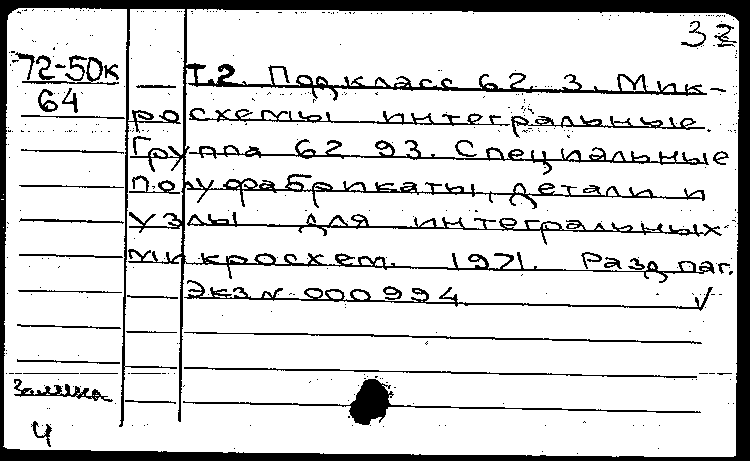 32
72-50к
64
Т.2. Подкласс 62. 3. Мик-
росхемы интегральные.
Группа 62 93. Специальные
полуфабрикаты, детали и
узлы для интегральных
микросхем. 1971. Разд паг.
Экз № 000994 ✓
Ч